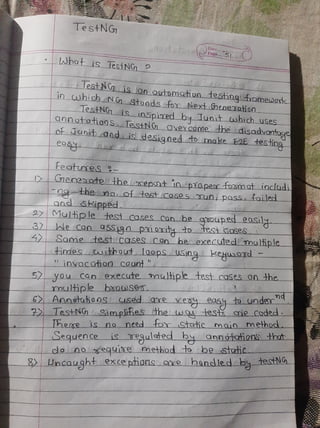 TestNG
Page 31
• What is TestNG ?
TestNG is an automation testing framework
in which NG stands for Next Generation.
TestNG is inspired by Junit which uses
annotations. TestNG overcome the disadvantage
of Junit and is designed to make E2E testing
easy.
Features :-
1) Generate the report in proper format includi
-ng the no. of test cases run, pass, failed
and skipped.
2) Multiple test cases can be grouped easily
3) We can assign priority to test cases.
4) Same test cases can be executed multiple
times without loops using keyword -
"invocation count".
5) you can execute multiple test cases on the
multiple browser.
6) Annotations used are very easy to undernd
7) TestNG simplifies the way tests are coded.
There is no need for static main method.
Sequence is regulated by annotations that
do no require method to be static.
8) Uncaught exceptions are handled by testNG